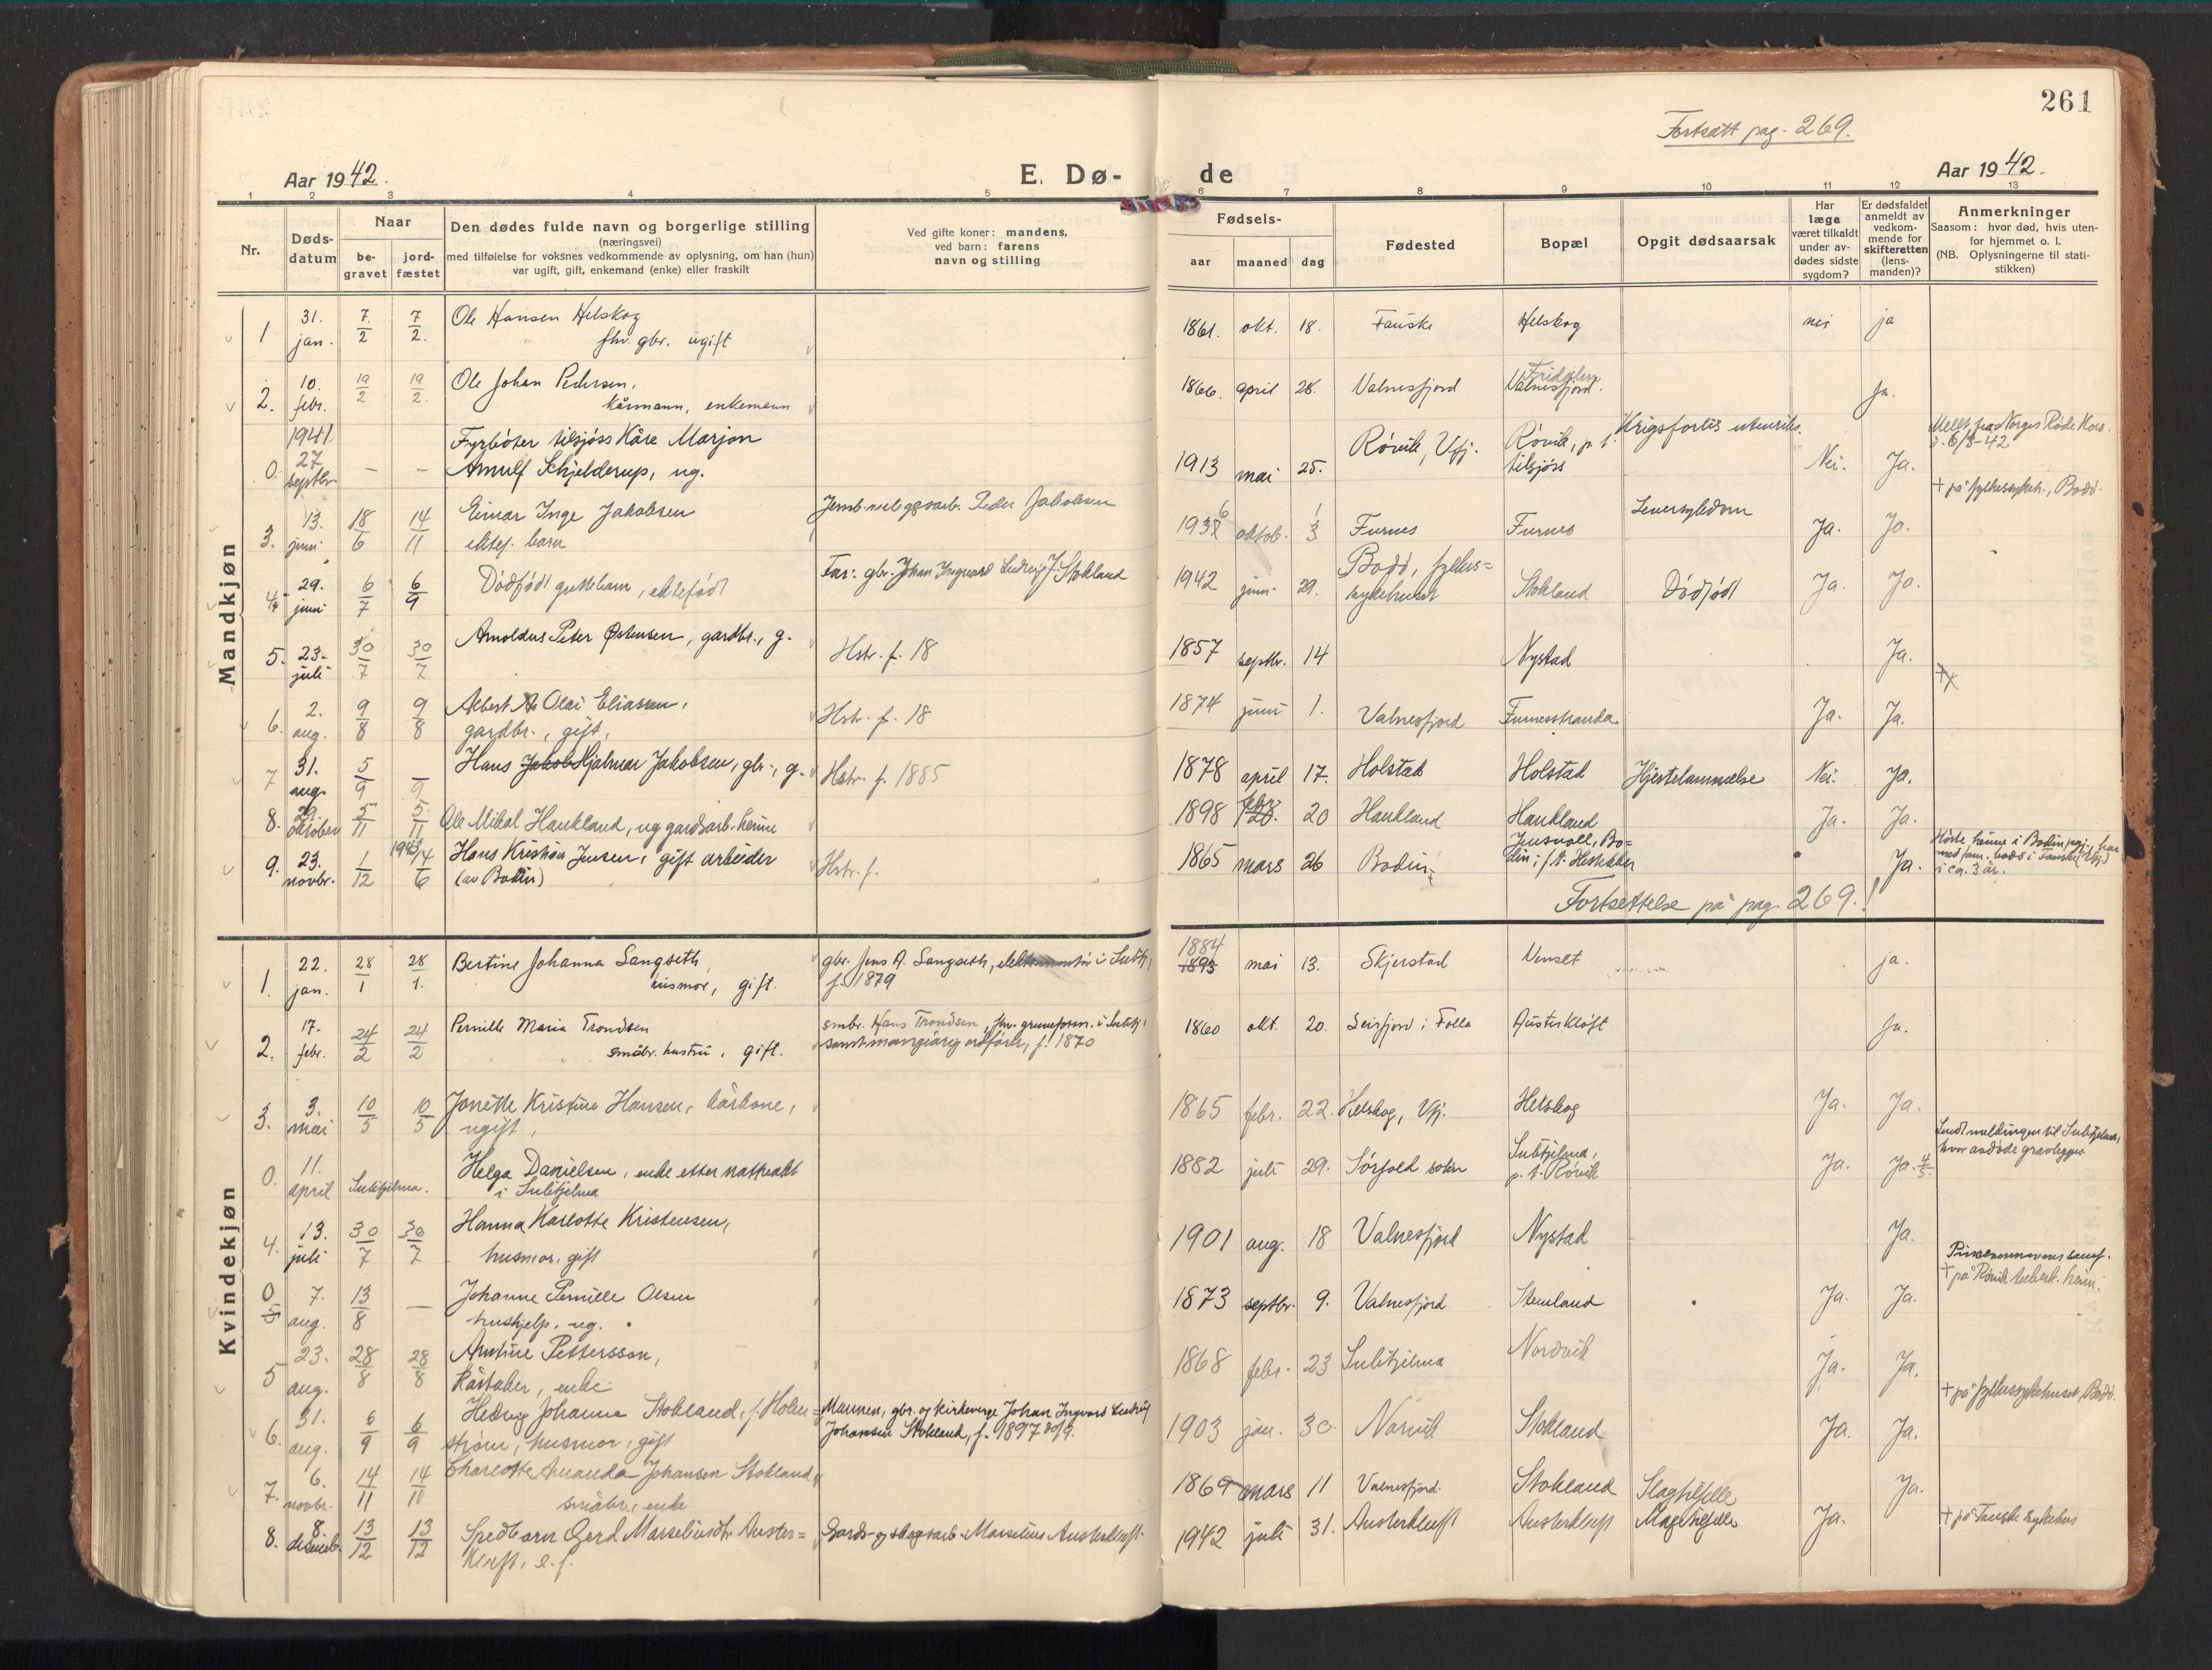 261
Fortsatt pag. 269.
Aar 1942.
E. Dø-
de
Aar 1942.
1 2 3 4 5 6 7 8 9 10 11 12 13
Nr.
Døds-
datum
Naar
be-
gravet
jord-
fæstet
Den dødes fulde navn og borgerlige stilling
(næringsvei)
med tilføielse for voksnes vedkommende av oplysning, om han (hun)
var ugift, gift, enkemand (enke) eller fraskilt
Ved gifte koner: mandens,
ved barn: farens
navn og stilling
Fødsels-
aar maaned dag
Fødested
Bopæl
Opgit dødsaarsak
Har
læge
været tilkaldt
under av-
dødes sidste
sygdom?
Er dødsfaldet
anmeldt av
vedkom-
mende for
skifteretten
(lens-
manden)?
Anmerkninger
Saasom: hvor død, hvis uten-
for hjemmet o. l.
(NB. Oplysningerne til stati-
stikken)
Mandkjøn
1 31. jan. 7/2 7/2. Ole Hansen Helskog
fhv. gbr. ugift
1861. okt. 18. Fauske Helskog nei ja
2. 10. febr. 19/2 19/2. Ole Johan Pedersen,
kårmann, enkemann
1866. april 28. Valnesfjord Valnesfjord. Ja.
0. 1941 27. septbr. — — Fyrbøter tilsjøss Kåre Marjon
Arnulf Schjelderup, ug.
1913 mai 25. Røvik, Vfj. Røvik, p. t.
tilsjøss
Krigsforlis utenriks. Nei. Ja. Meldt fra Norges Røde Kors
d. 6/8-42
3. 13. juni 18/6 14/11 Einar Inge Jakobsen
ektef. barn
Peder Jakobsen
oktob. Furnes Furnes Leversykdom Ja. Ja. + på fylkessykeh., Bodø.
4. 29. juni 6/7 6/9 Dødfødt guttebarn, ektefødt
Far: gbr. Johan Ingvard Ludvig J. Stokland
1942 juni 29. Bodø, fylkes=
sykehuset
Stokland Dødfødt Ja. Ja.
5. 23. juli 30/7 30/7 Arnoldus Peter Østensen, gardbr., g.
Hstr. f. 18
1857 septbr. 14 Nystad Ja.
6. 2. aug. 9/8 9/8 Albert Olai Eliassen,
gardbr., gift,
Hstr. f. 18
1874 juni 1. Valnesfjord Furnesstranda Ja. Ja.
7 31. aug. 5/9 Hans Jakob Hjalmar Jakobsen, gbr., g.
Hstr. f. 1885
1878 april 17. Holstad Holstad Hjertelammelse Nei. Ja.
8. 29. oktober 5/11 5/11 Ole Mikal Haukland, ug gardsarb. heime
1898 febr. 20 Haukland Haukland Ja. Ja.
9. 23. novbr. 1/12 1943 14/6 Hans Kristian Jensen, gift arbeider
(av Bodin)
Hstr. f.
1865 mars 26 Bodin Jensvoll, Bo=
din,
Ja. i ca. 3 år.
Fortsettelse på pag. 269.!
Kvindekjøn
1. 22. jan. 28/1 28/1. Bertine Johanna Langseth,
husmor, gift.
gbr. Jens A. Langseth,
f. 1879
1884
1893 mai 13. Skjerstad Venset ja.
2. 17. febr. 24/2 24/2 Pernille Maria Trondsen
småbr. hustru, gift.
småbr. Hans Trondsen,
samt mangeårig ordfører, f. 1870
1860 okt. 20. Leirfjord i Folla Austerkløft Ja.
3. 3. mai 10/5 10/5 Jonette Kristine Hansen, kårkone,
ugift,
1865 febr. 22. Helskog, Vfj. Helskog Ja. Ja.
0. 11. april Sulitjelma. Helga Danielsen, enke etter nattvakt
i Sulitjelma
1882 juli 29. Sørfold sokn Sulitjelma,
p. t. Røvik
Ja. Ja. 4/5. Sendt meldingen til Sulitjelma,
hvor avdøde gravlegges.
4. 13. juli 30/7 30/7 Hanna Karlotte Kristensen,
husmor, gift
1901 aug. 18 Valnesfjord Nystad Ja.
0 5 7. aug. 13/8 — Johanne Pernille Olsen
hushjelp, ug.
1873 septbr. 9. Valnesfjord Stemland Ja. Ja.
+ på Røvik tuberk. heim.
5 23. aug. 28/8 28/8 Arntine Pettersson,
kårtaker, enke
1868 febr. 23 Sulitjelma Nordvik Ja. Ja.
6. 31. aug. 6/9 6/9 Hedvig Johanna Stokland, f. Holm=
strøm, husmor, gift
Mannen, gbr. og kirkeverge Johan Ingvard Ludvig
Johansen Stokland, f. 1897
1903 jan. 30. Narvik Stokland Ja. Ja. + på fylkessykehuset, Bodø.
7. 6. novbr. 14/11 14/11 Charlotte Amanda Johansen Stokland,
småbr., enke
1869 mars 11 Valnesfjord. Stokland Slagtilfelle Ja.
8. 8. desemb. 13/12 13/12 Spedbarn Gerd Marselinsdtr. Auster=
kløft, e. f.
Gards- og skogsarb. Marselius Austerkløft
1942 juli 31. Austerkløft Austerkløft Ja. + på Fauske sykehus